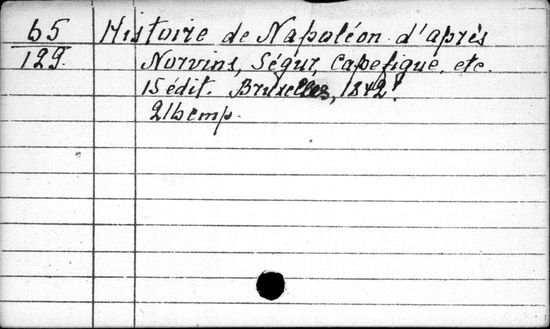 65 Histoire de Napoléon d'après
129. Norvins, Ségur, Capefigue, etc.
15 édit. Bruxelles, 1842.